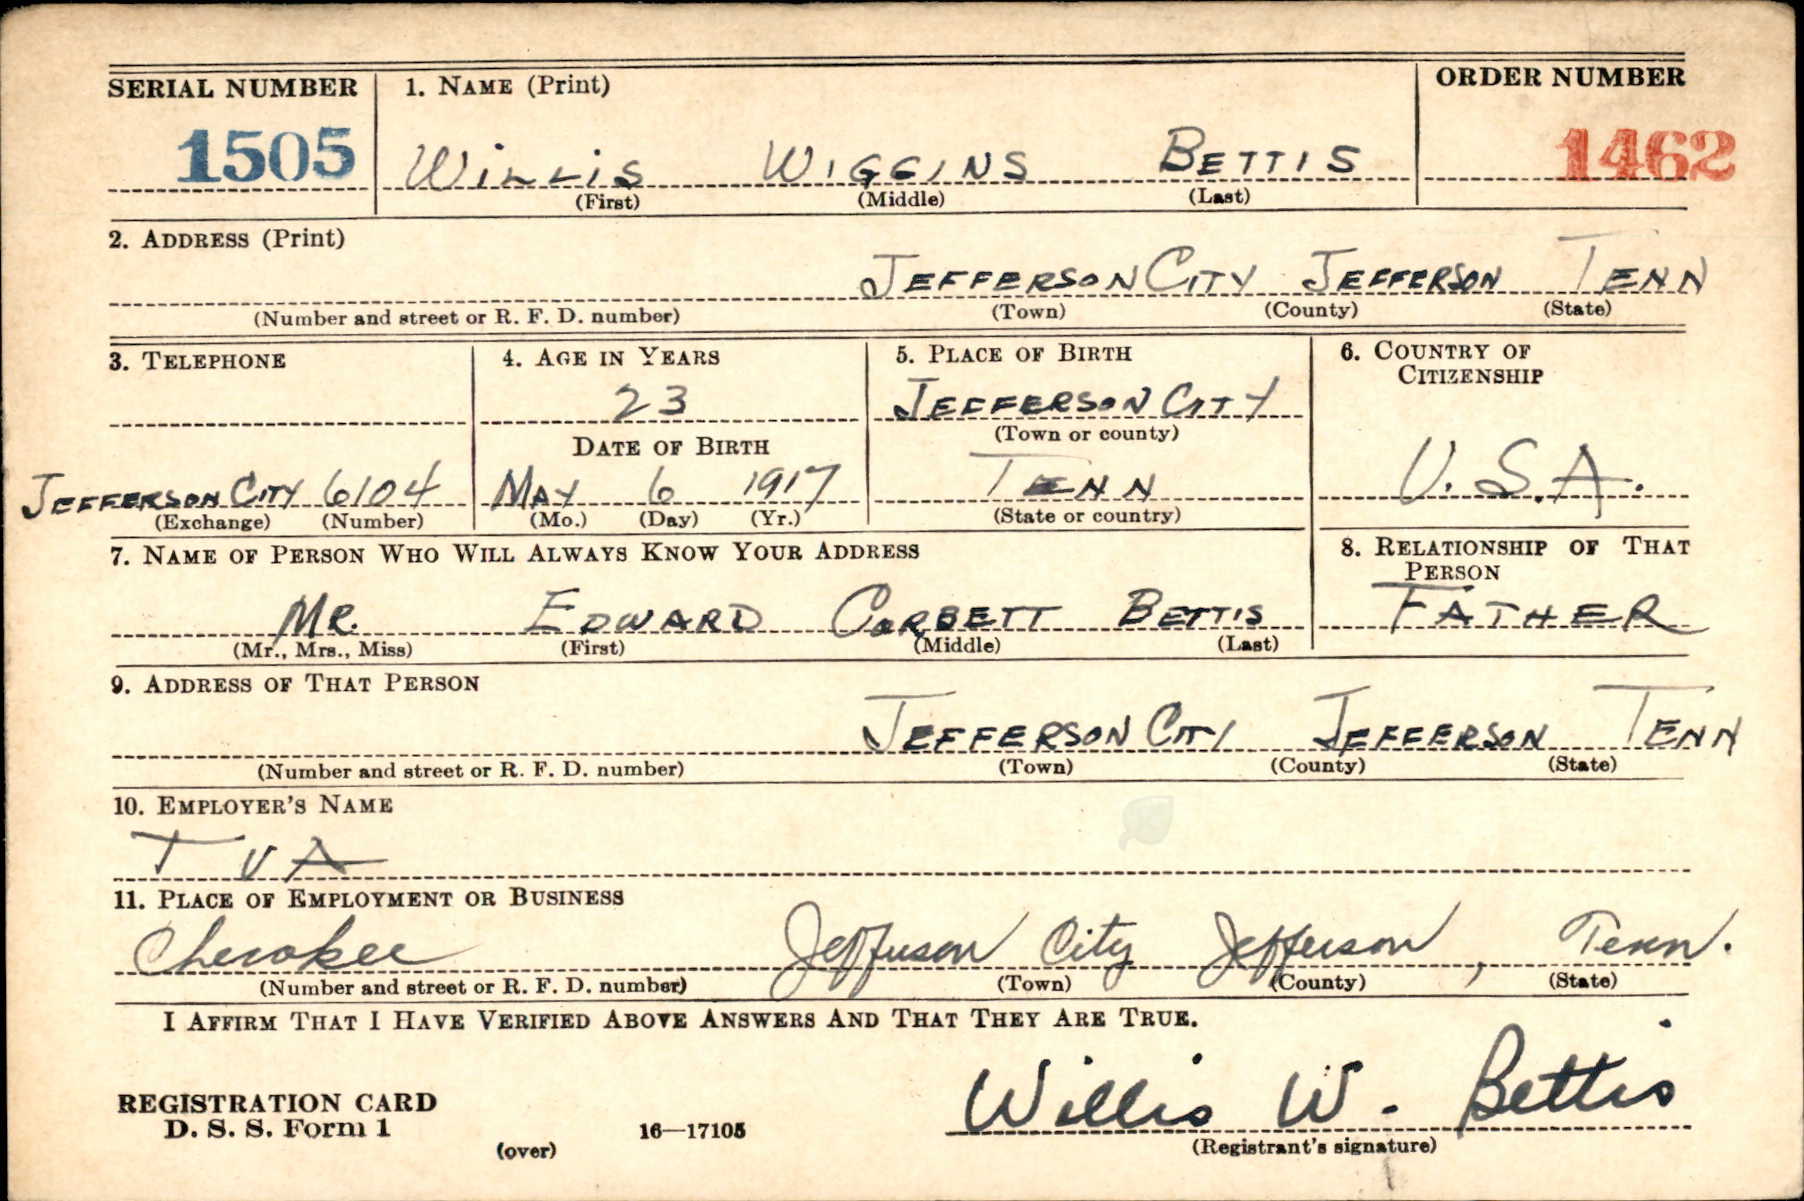 SERIAL NUMBER 1. NAME (Print) ORDER NUMBER
1505 WILLIS WIGGINS BETTIS 1462
(First) (Middle) (Last)
2. ADDRESS (Print)
JEFFERSON CITY JEFFERSON TENN
(Number and street or R. F. D. number) (Town) (County) (State)
3. TELEPHONE 4. AGE IN YEARS 5. PLACE OF BIRTH 6. COUNTRY OF CITIZENSHIP
23 JEFFERSON CITY
DATE OF BIRTH (Town or county)
JEFFERSON CITY 6104 MAY 6 1917 TENN U.S.A.
(Exchange) (Number) (Mo.) (Day) (Yr.) (State or country)
7. NAME OF PERSON WHO WILL ALWAYS KNOW YOUR ADDRESS 8. RELATIONSHIP OF THAT PERSON
MR. EDWARD CORBETT BETTIS FATHER
(Mr., Mrs., Miss) (First) (Middle) (Last)
9. ADDRESS OF THAT PERSON
JEFFERSON CITY JEFFERSON TENN
(Number and street or R. F. D. number) (Town) (County) (State)
10. EMPLOYER'S NAME
T V A
11. PLACE OF EMPLOYMENT OR BUSINESS
Cherokee Jefferson City Jefferson, Tenn.
(Number and street or R. F. D. number) (Town) (County) (State)
I AFFIRM THAT I HAVE VERIFIED ABOVE ANSWERS AND THAT THEY ARE TRUE.
Willis W. Bettis
REGISTRATION CARD
D. S. S. Form 1 (over) 16—17105 (Registrant's signature)